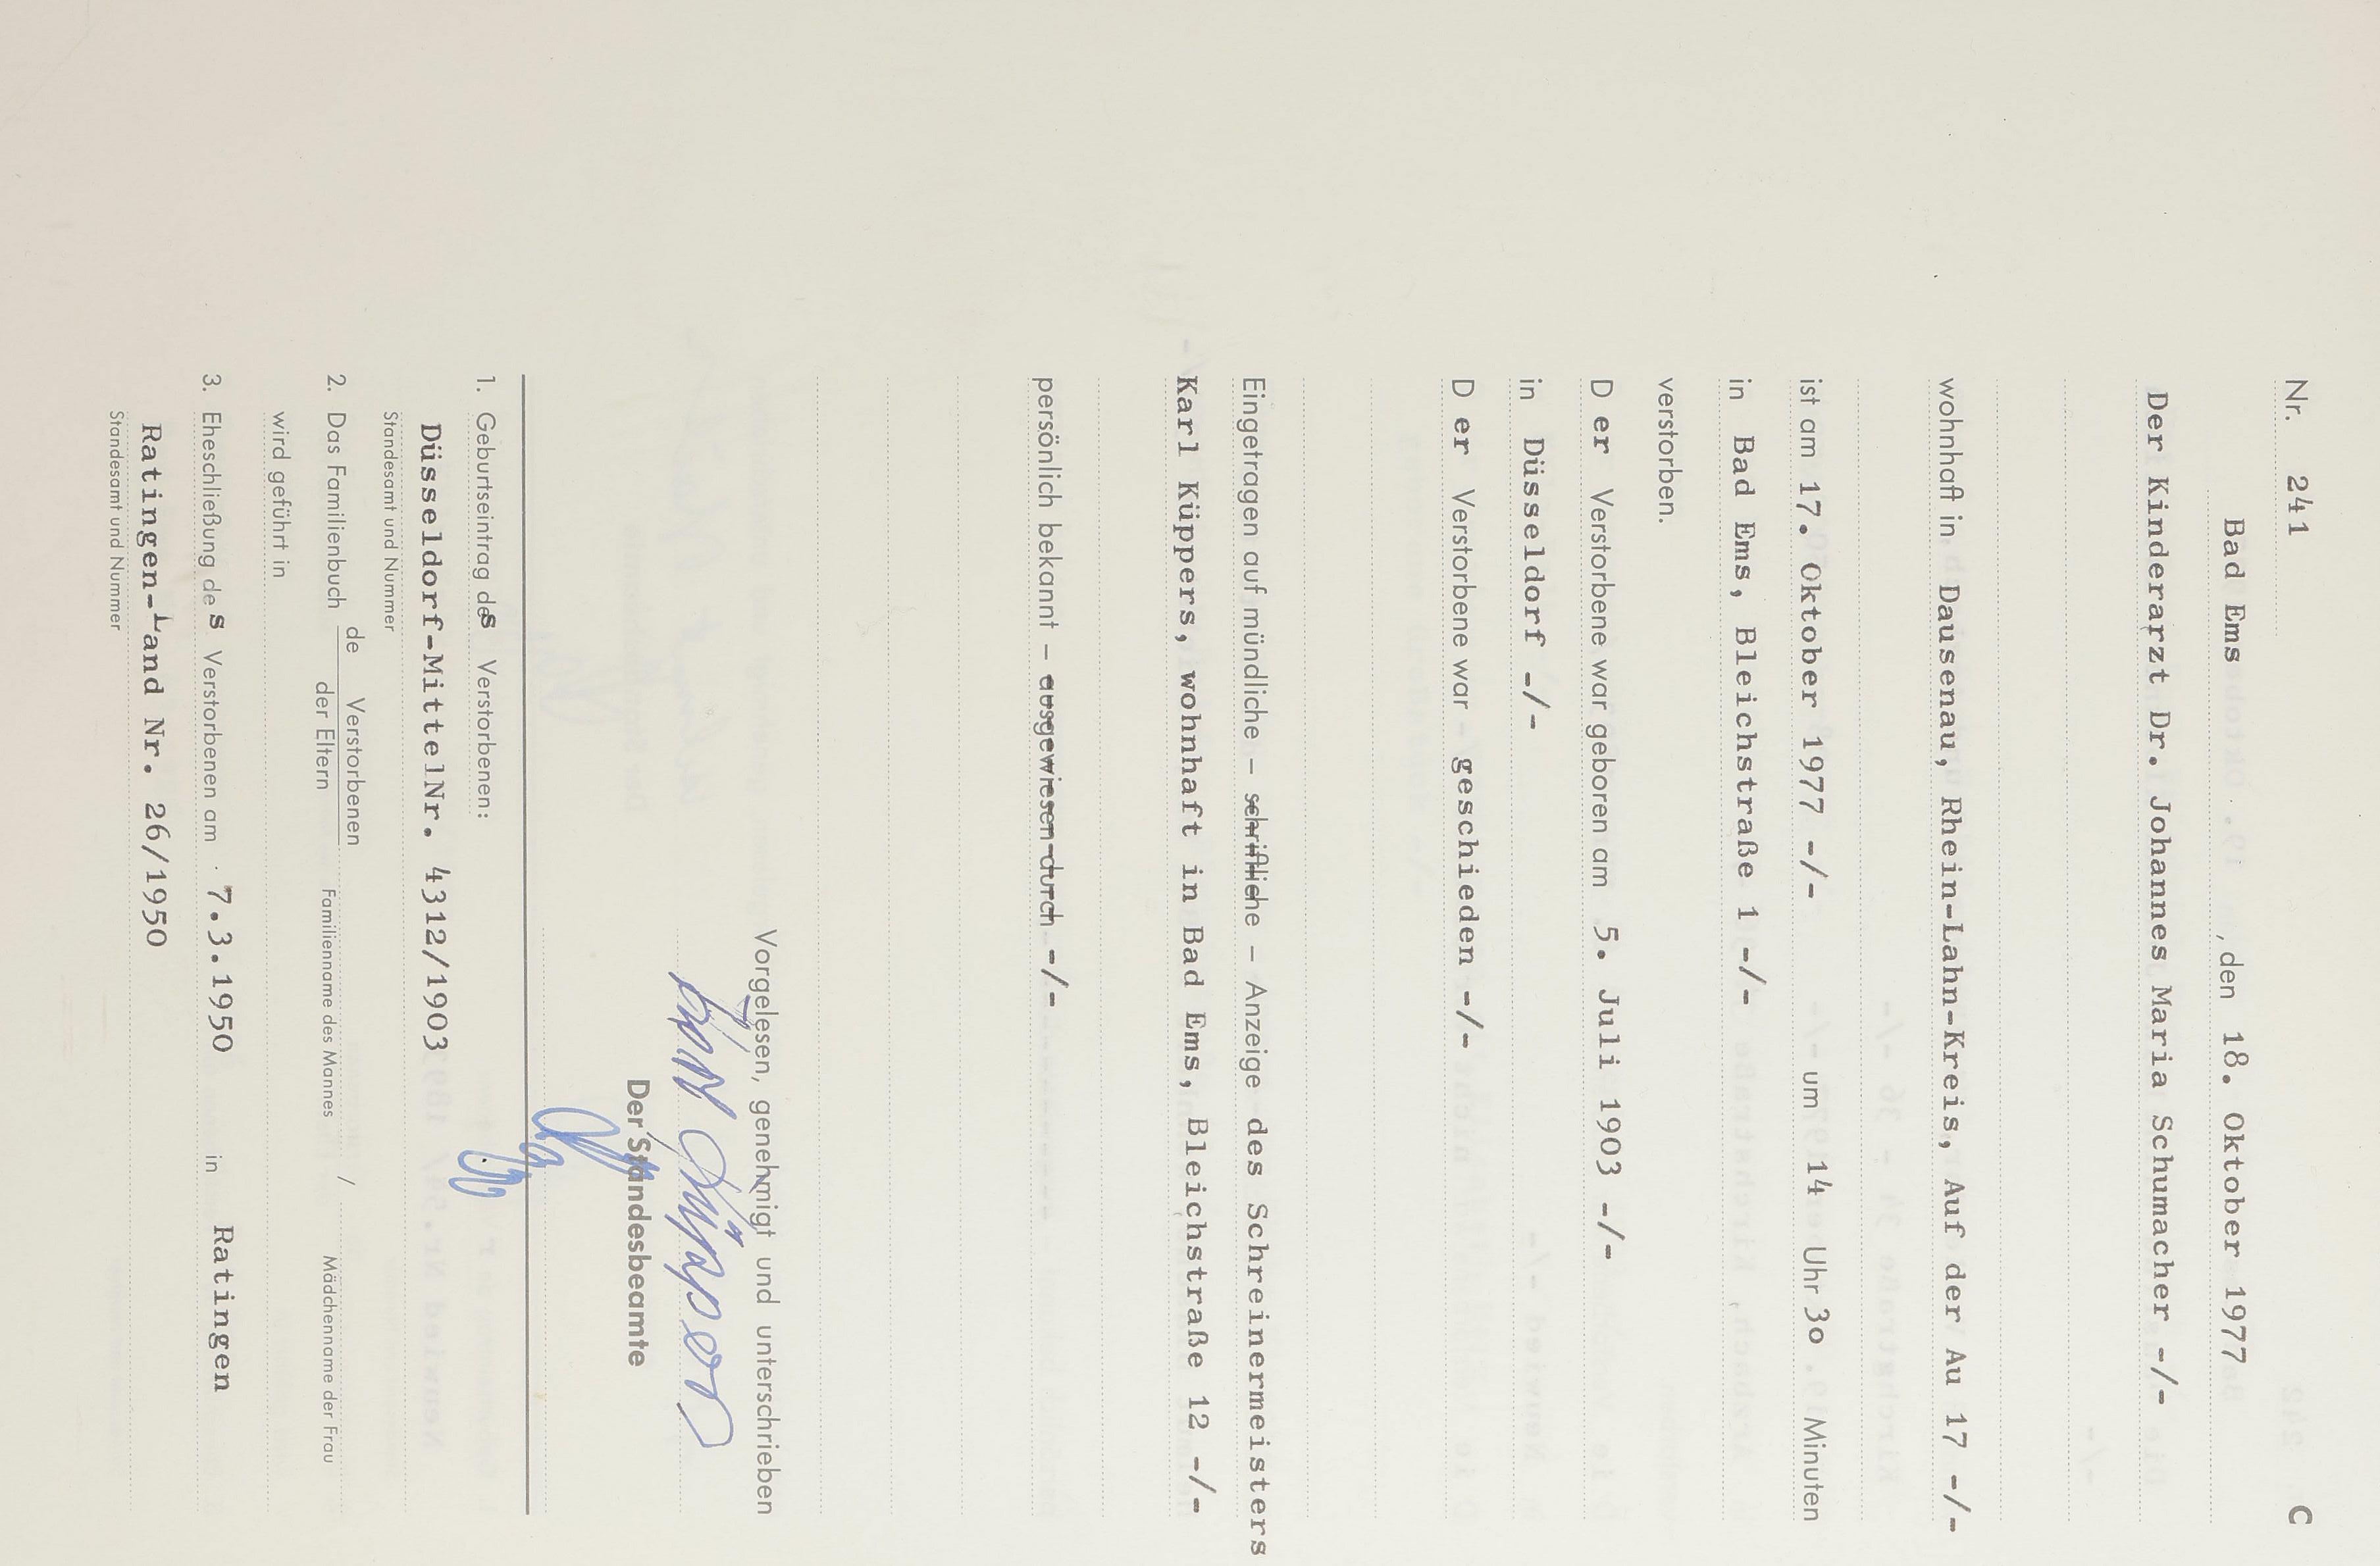 Nr. 241 C
Bad Ems, den 18. Oktober 1977
Der Kinderarzt Dr. Johannes Maria Schumacher -/-
wohnhaft in Dausenau, Rhein-Lahn-Kreis, Auf der Au 17 -/-
ist am 17. Oktober 1977 -/- um 14 Uhr 3o Minuten
in Bad Ems, Bleichstraße 1 -/-
verstorben.
D er Verstorbene war geboren am 5. Juli 1903 -/-
in Düsseldorf -/-
D er Verstorbene war geschieden -/-
Eingetragen auf mündliche – schriftliche – Anzeige des Schreinermeisters
Karl Küppers, wohnhaft in Bad Ems, Bleichstraße 12 -/-
persönlich bekannt – ausgewiesen durch -/-
Vorgelesen, genehmigt und unterschrieben
Karl Küppers
Der Standesbeamte
1. Geburtseintrag des Verstorbenen:
Düsseldorf-MittelNr. 4312/1903
Standesamt und Nummer
de Verstorbenen
2. Das Familienbuch der Eltern Familienname des Mannes / Mädchenname der Frau
wird geführt in
3. Eheschließung des Verstorbenen am 7.3.1950 in Ratingen
Ratingen-Land Nr. 26/1950
Standesamt und Nummer